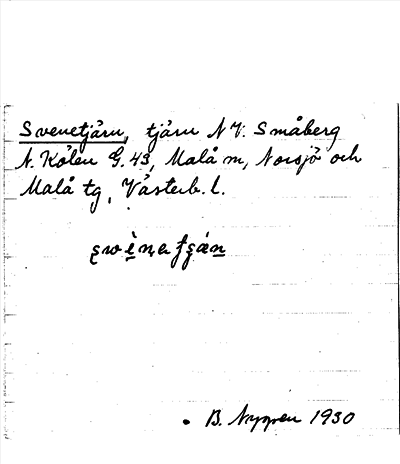 Svenetjärn, tjärn N V. Småberg
N. Kölen G. 43, Malå m, Norsjö och
Malå tg, Västerb. l.
B. Nygren 1930